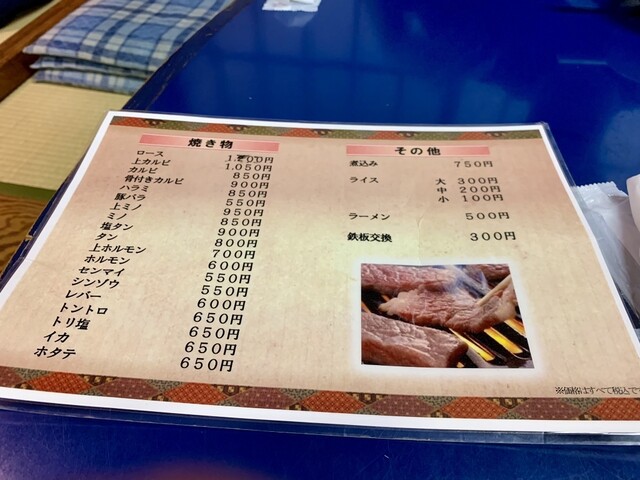 焼き物
ロース
上カルビ 1,050円
カルビ 850円
骨付きカルビ 900円
ハラミ 850円
豚バラ 550円
上ミノ 950円
ミノ 850円
塩タン 900円
タン 800円
上ホルモン 700円
ホルモン 600円
センマイ 550円
シンゾウ 550円
レバー 600円
トントロ 650円
トリ塩 650円
イカ 650円
ホタテ 650円
その他
煮込み 750円
ライス 大 300円
中 200円
小 100円
ラーメン 500円
鉄板交換 300円
※価格はすべて税込で